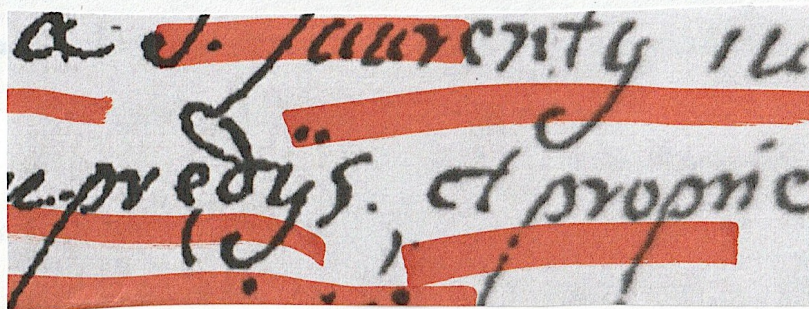 a S. Laurenty in
prędys. et proprie